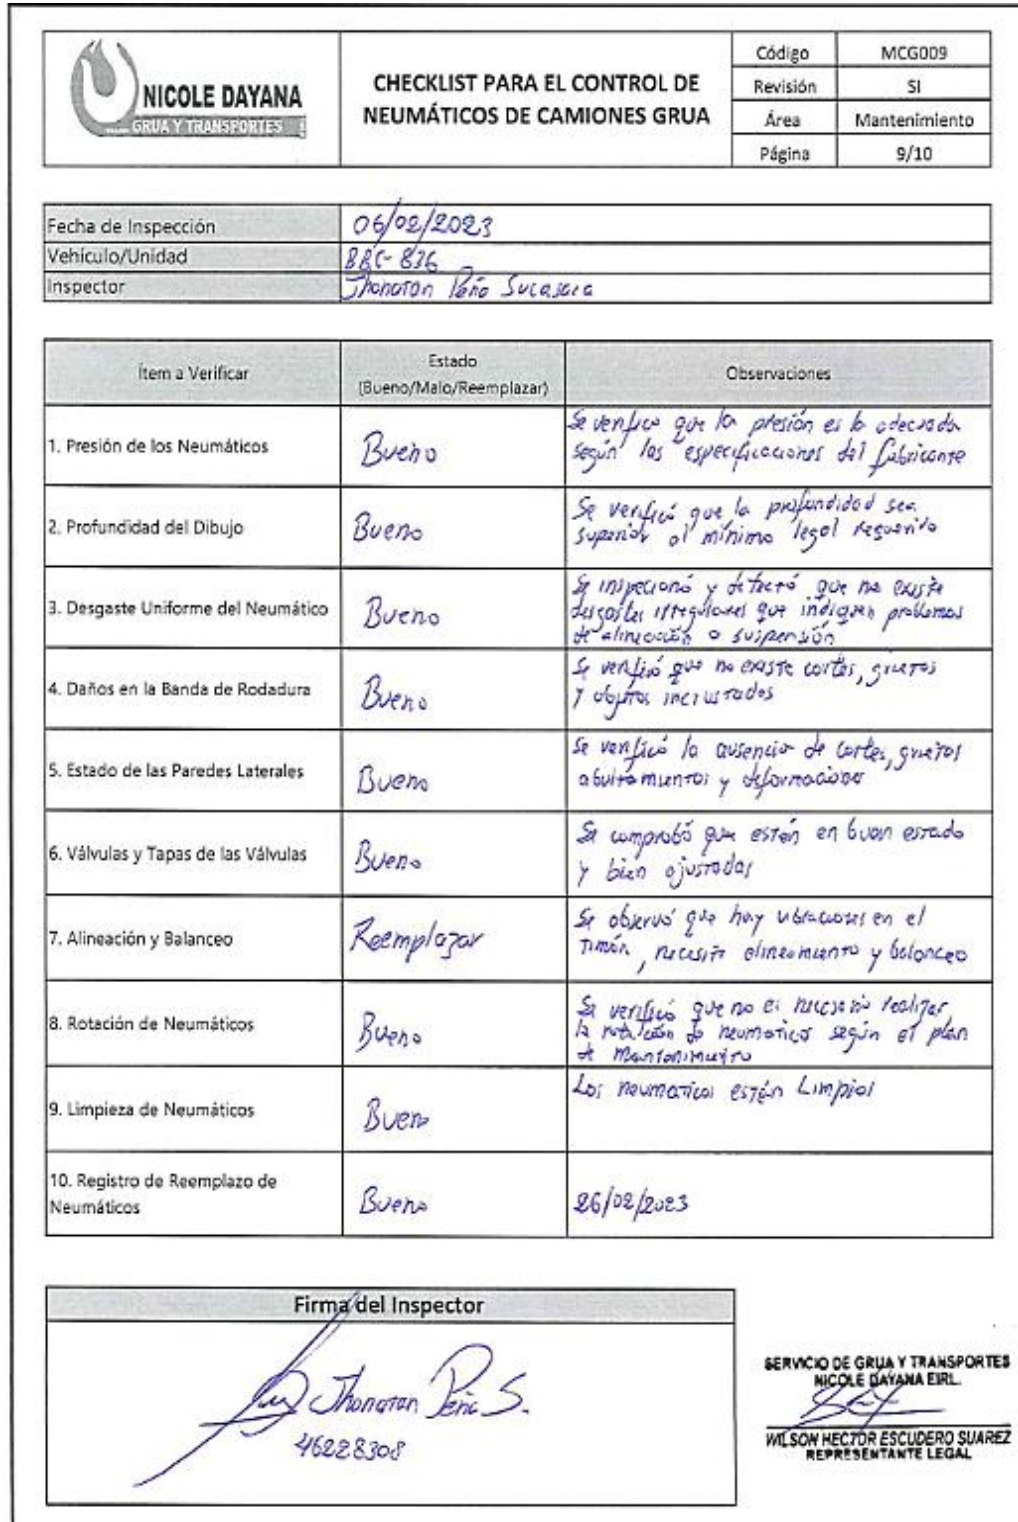 NICOLE DAYANA
GRUA Y TRANSPORTES
CHECKLIST PARA EL CONTROL DE
NEUMÁTICOS DE CAMIONES GRUA
Código MCG009
Revisión SI
Área Mantenimiento
Página 9/10
Fecha de Inspección 06/02/2023
Vehículo/Unidad BBC-836
Inspector Jhonatan Peña
Ítem a Verificar
Estado
(Bueno/Malo/Reemplazar)
Observaciones
1. Presión de los Neumáticos
Bueno
Se verifico que la presión es la adecuada
según las especificaciones del fabricante
2. Profundidad del Dibujo
Bueno
Se verificó que la profundidad sea
superior al mínimo legal requerido
3. Desgaste Uniforme del Neumático
Bueno
Se inspecionó y detectó que no existe
desgastes irregulares que indiquen problemas
de alineación o suspensión
4. Daños en la Banda de Rodadura
Bueno
Se verificó que no existe cortes, grietas
y objetos incrustados
5. Estado de las Paredes Laterales
Bueno
Se verificó la ausencia de cortes, grietas
y deformaciones
6. Válvulas y Tapas de las Válvulas
Bueno
Se comprobó que están en buen estado
y bien ajustadas
7. Alineación y Balanceo
Reemplazar
Se observó que hay vibraciones en el
timón, necesita alineamiento y balanceo
8. Rotación de Neumáticos
Bueno
Se verificó que no es necesario realizar
la rotación de neumaticos según el plan
de Mantenimiento
9. Limpieza de Neumáticos
Bueno
Los neumaticos están Limpios
10. Registro de Reemplazo de
Neumáticos
Bueno
26/02/2023
Firma del Inspector
Jhonatan Peña S.
46228308
SERVICIO DE GRUA Y TRANSPORTES
NICOLE DAYANA EIRL.
WILSON HECTOR ESCUDERO SUAREZ
REPRESENTANTE LEGAL